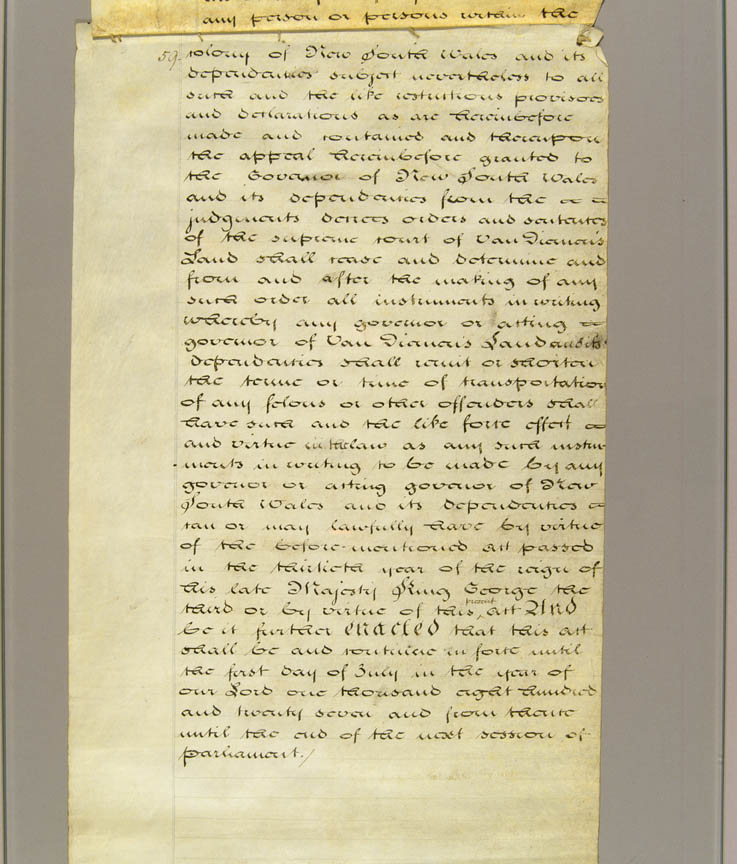 any person or persons within the
59. colony of New South Wales and its
dependencies subject nevertheless to all
such and the like restrictions provisoes
and declarations as are hereinbefore
made and contained and thereupon
the appeal hereinbefore granted to
the Govenor of New South Wales
and its dependencies from the
judgments decrees orders and sentences
of the supreme court of Van Diemen's
Land shall cease and determine and
from and after the making of any
such order all instruments in writing
whereby any governor or acting
governor of Van Diemen's Land and its
dependencies shall remit or shorten
the terme or time of transportation
of any felons or other offenders shall
have such and the like force effect
and virtue in the law as any such instru-
ments in writing to be made by any
govenor or acting govenor of New
South Wales and its dependencies
can or may lawfully have by virtue
of the before-mentioned act passed
in the thirtieth year of the reign of
his late Majesty King George the
third or by virtue of this present act And
be it further enacted that this act
shall be and continue in force until
the first day of July in the year of
our Lord one thousand eight hundred
and twenty seven and from thence
until the end of the next session of
parliament./